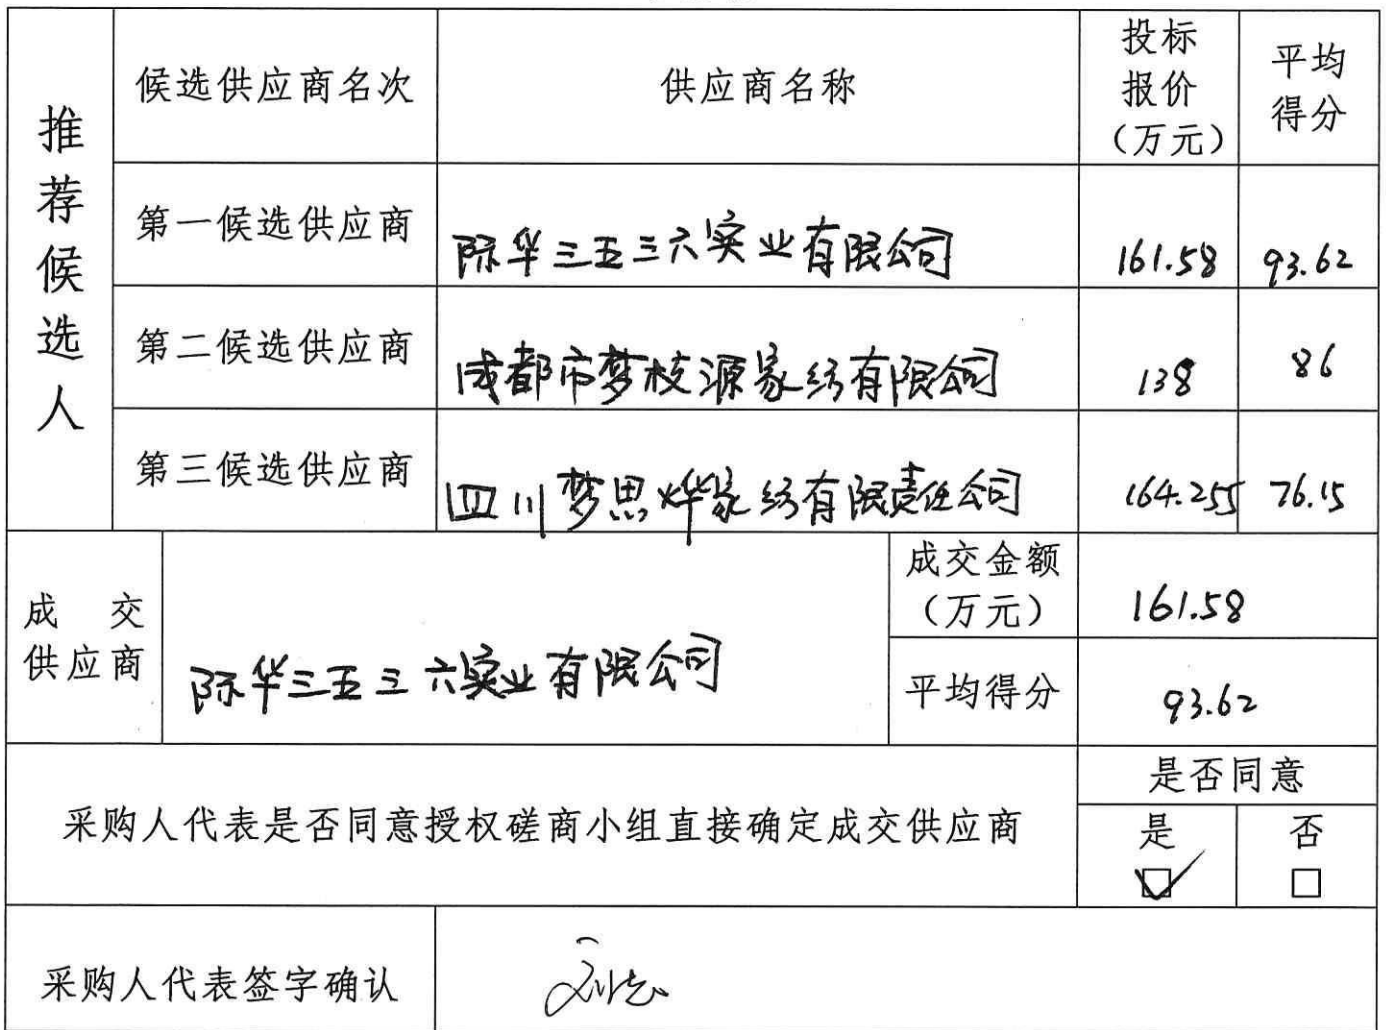 推荐候选人
候选供应商名次 供应商名称 投标报价（万元） 平均得分
第一候选供应商 际华三五三六实业有限公司 161.58 93.62
第二候选供应商 成都市梦枝源家纺有限公司 138 86
第三候选供应商 四川梦思烨家纺有限责任公司 164.255 76.15
成交供应商 际华三五三六实业有限公司 成交金额（万元） 161.58
平均得分 93.62
采购人代表是否同意授权磋商小组直接确定成交供应商 是否同意
是 否
☑ □
采购人代表签字确认